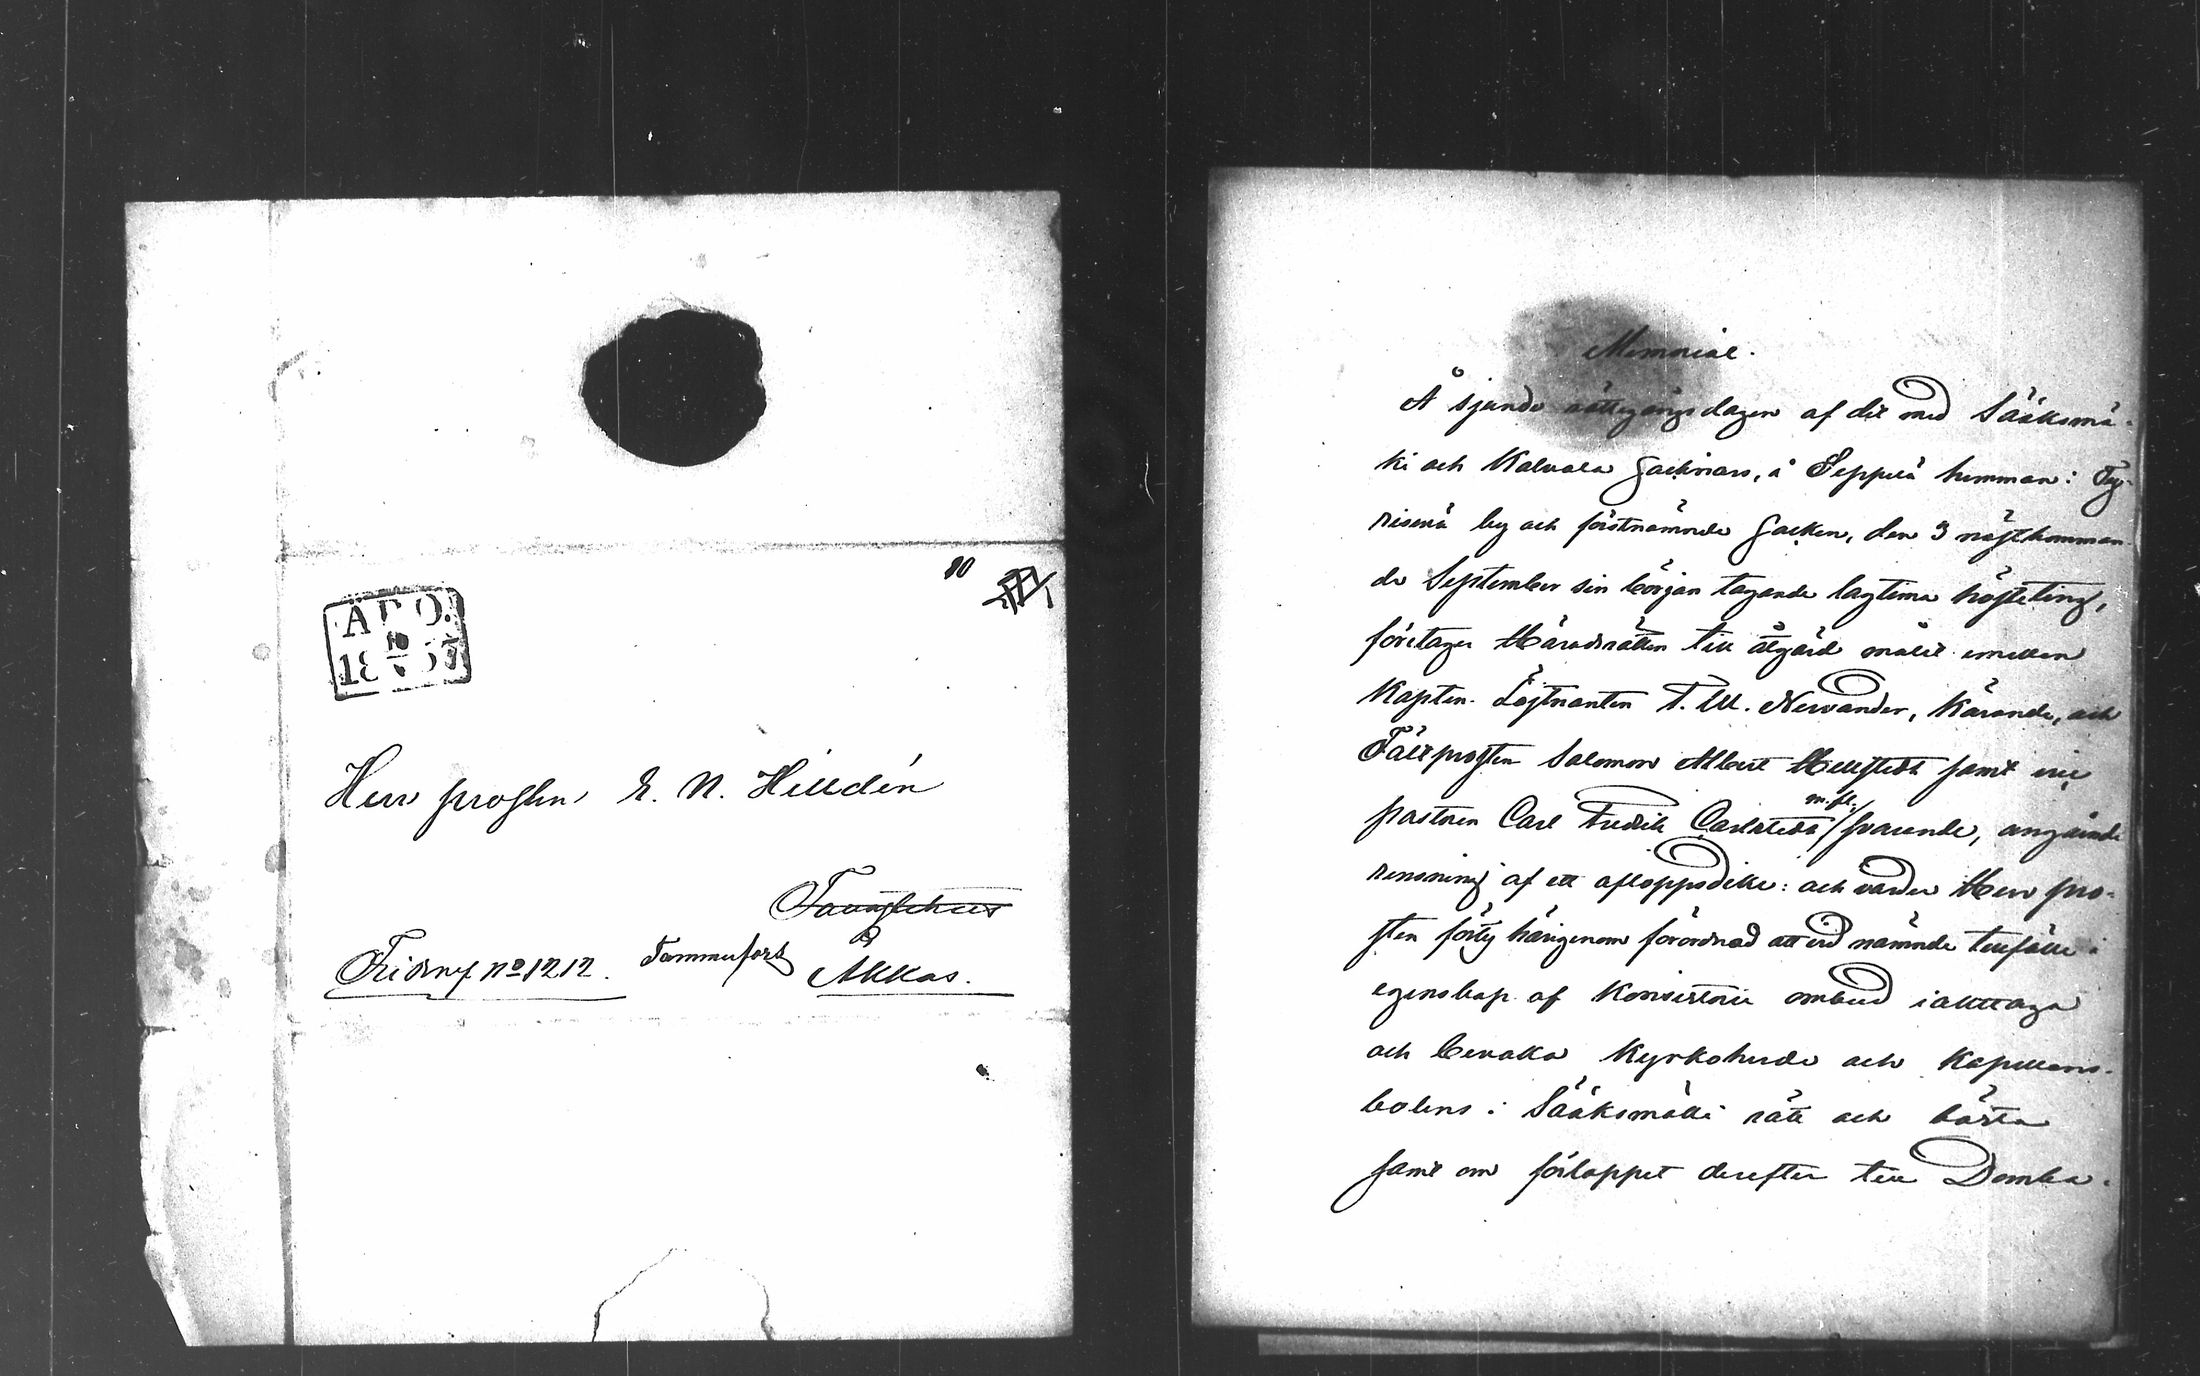 80
ÅBO.
10
1857
Herr prosten E. N. Hilldén
Tavastehus
Tammerfors
Fribref No 1212.
Akkas.
Memorial.
Å sjunde rättegångsdagen af det med Sääksmä-
ki och Kalvola Socknars, å Seppilä hemman i
by och förstnämnde Socken, den 3 nästkomman-
de September sin början tagande lagtima höste ting,
företager Häradsrätten till åtgärd målet emellan
Kapten-Löjtnanten T. W. Nervander, Kärande, och
Fältprosten Salomon Albert Hellstedt samt vice
pastoren Carl Fredrik Carlstedt m. fl. svarande, angående
rensning af ett afloppsdike: och varder Herr pro-
sten förty härigenom förordnad att vid nämnde tillfälle i
egenskap af Konsistorii ombud iakttaga
och bevaka Kyrkoherde och Kapellans-
bolens i Sääksmäki rätt och bästa
samt om förloppet derefter till Domka-